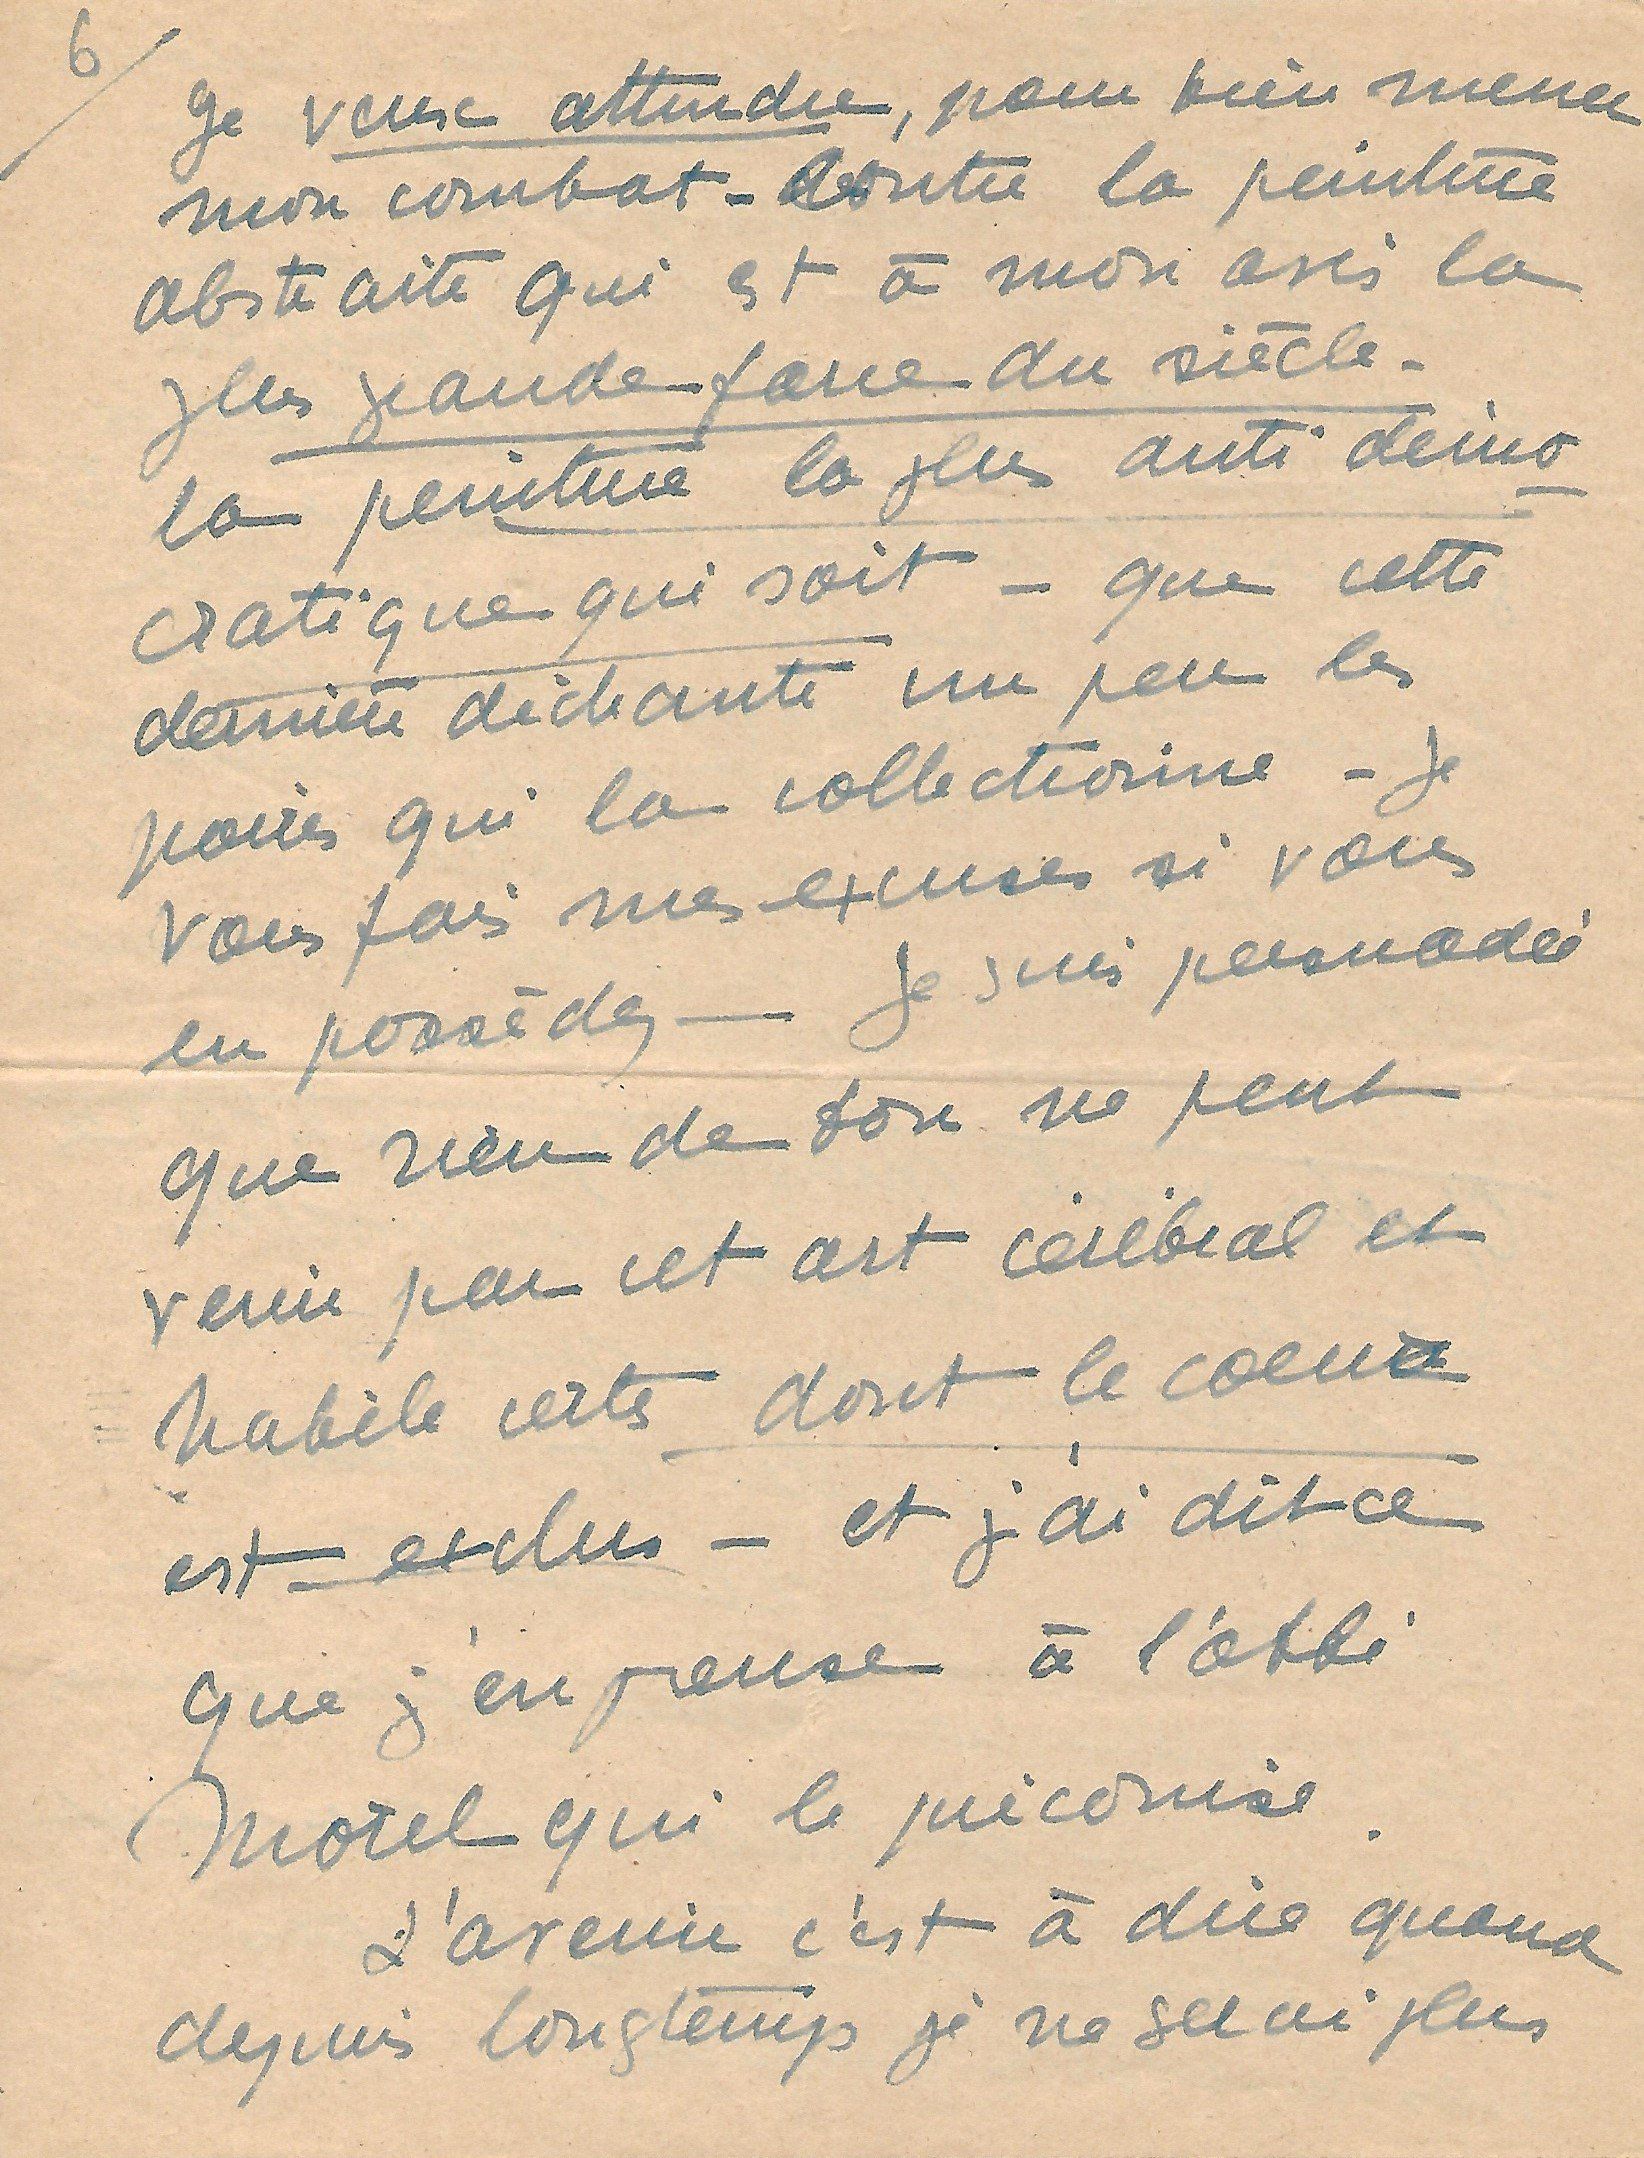 6/
Je veux attendre, pour bien mener
mon combat - contre la peinture
abstraite qui est à mon avis la
plus grande farce du siècle -
la peinture la plus anti démo
cratique qui soit - que cette
dernière déchante un peu les
poires qui la collectionne - Je
vous fais mes excuses si vous
en possédez — Je suis persuadée
que rien de bon ne peut
venir par cet art cérébral et
habile certes dont le coeur
est exclus - et j'ai dit ce
que j'en pense à l'abbé
Morel qui le préconise.
L'avenir c'est à dire quand
depuis longtemps je ne serai plus